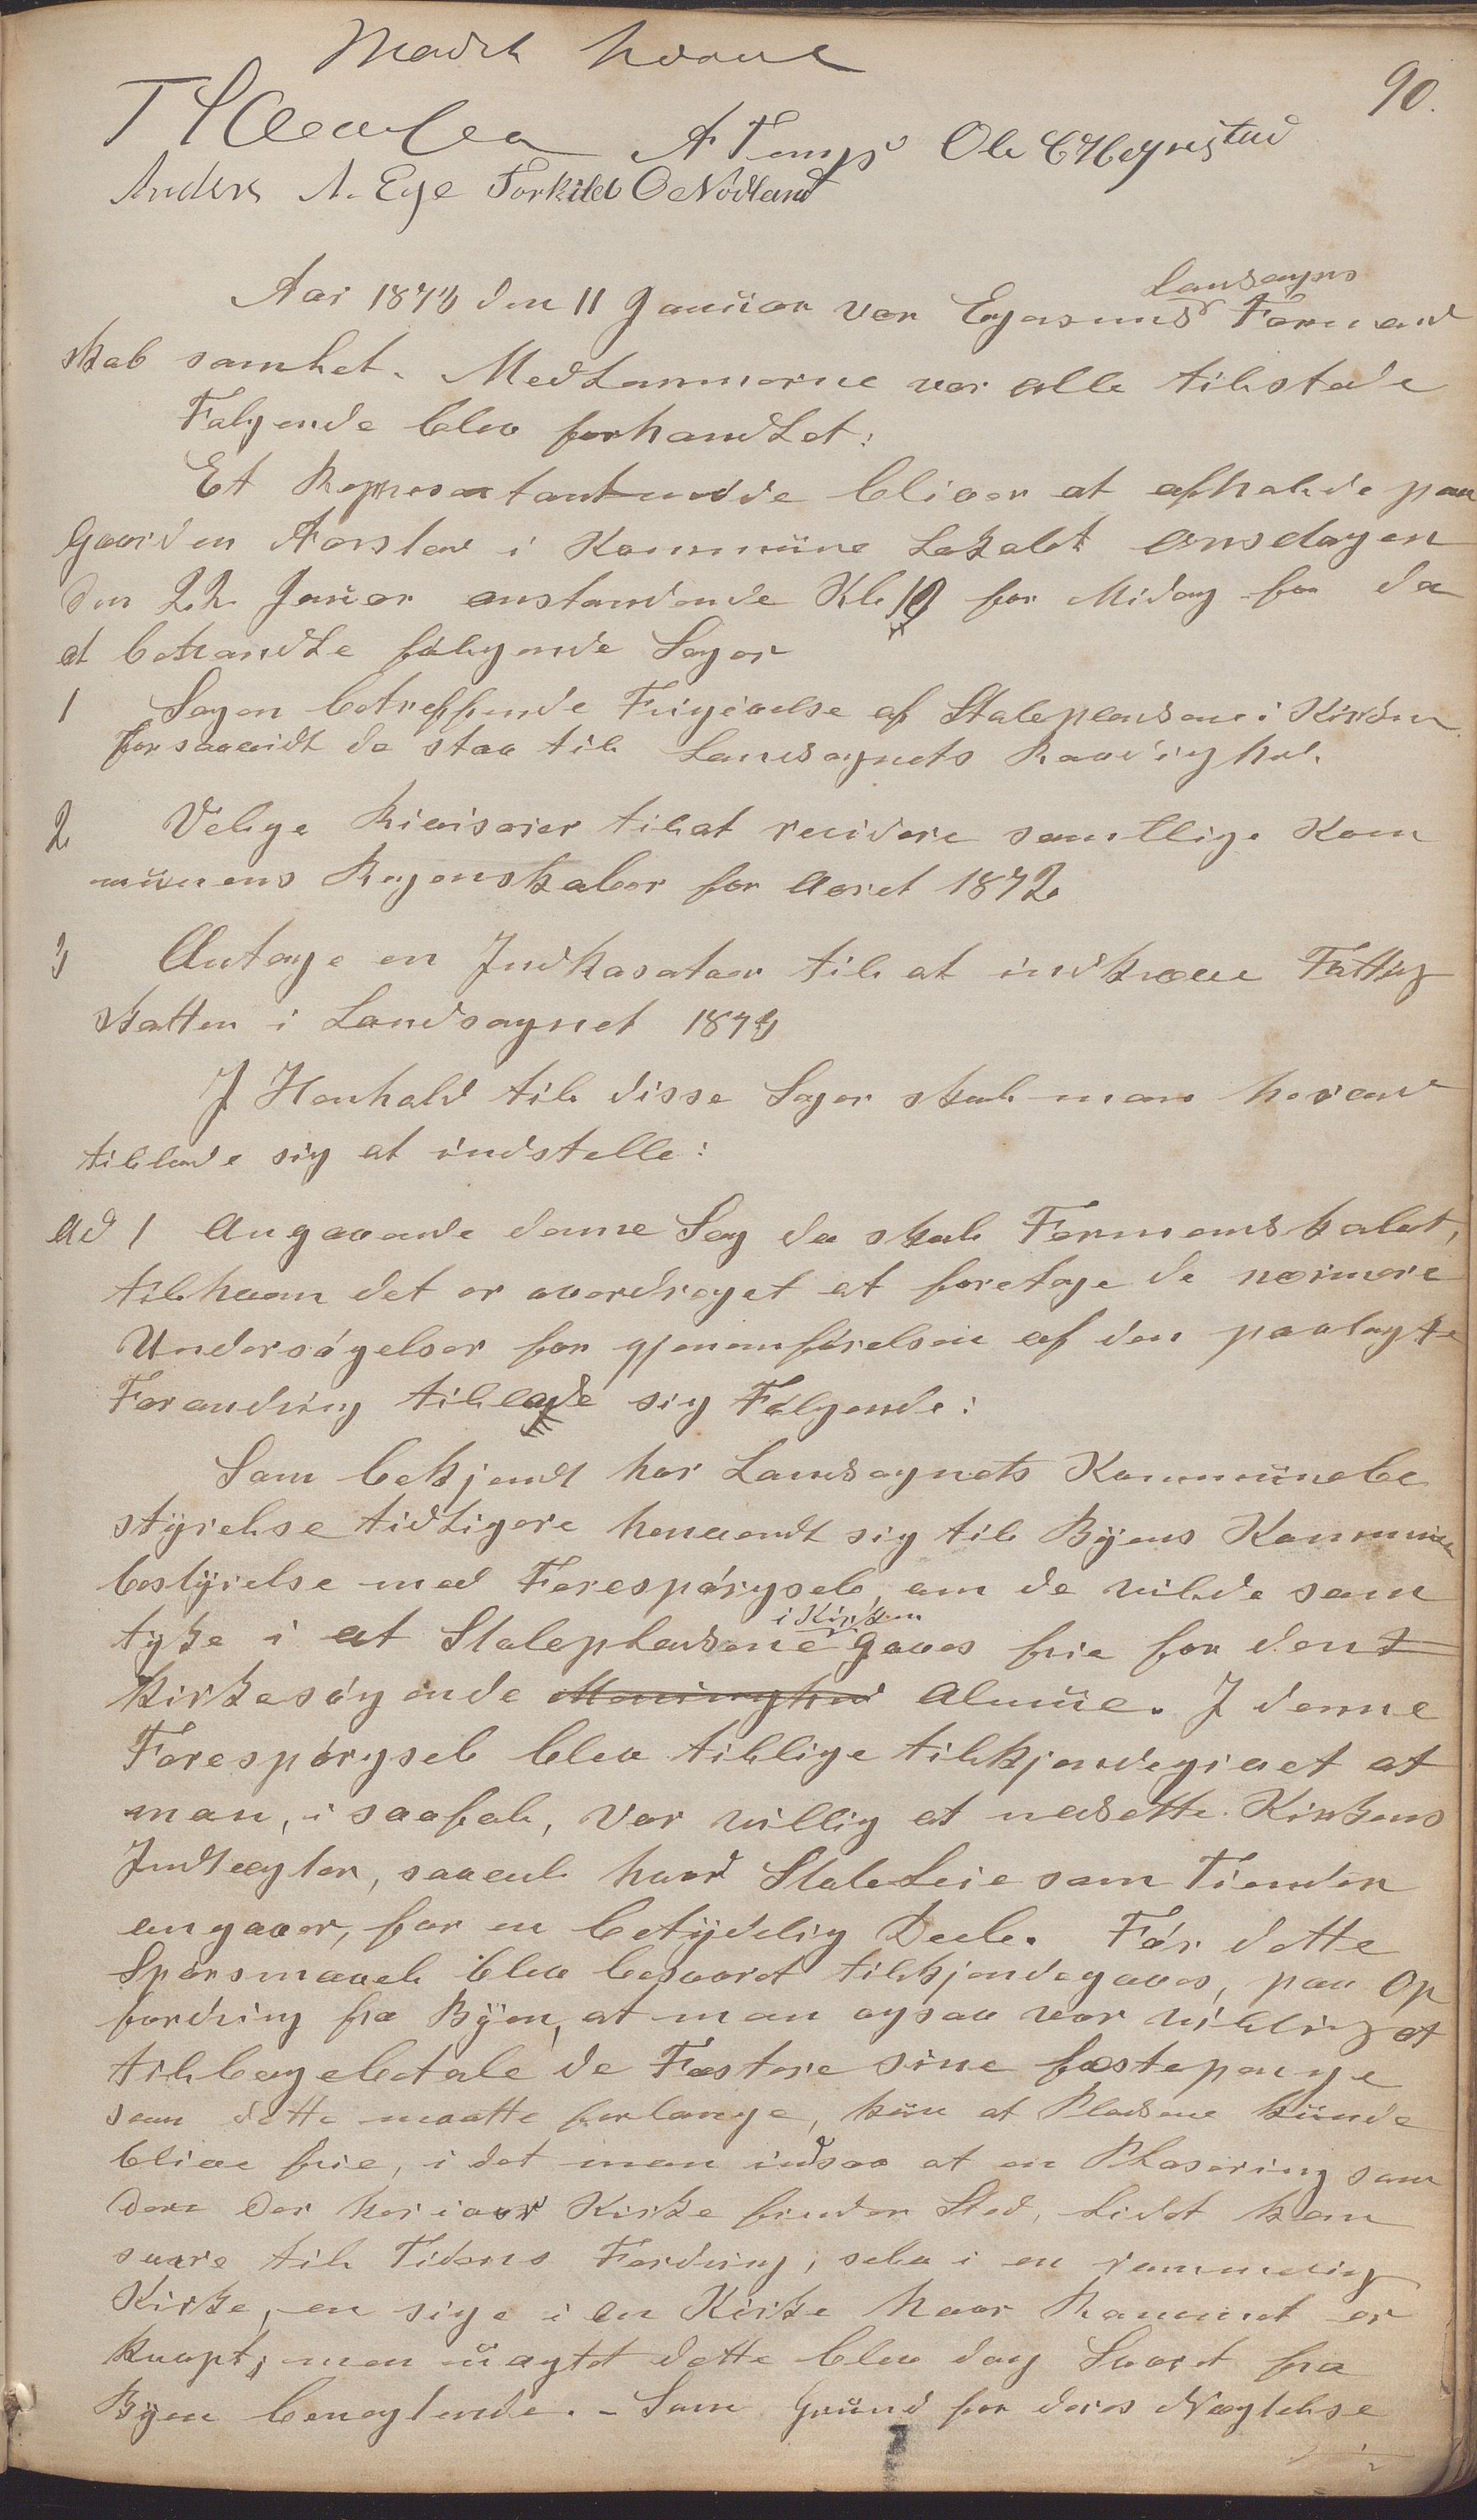 90.
A Tengs Ole C Høgnestad
Anders A. Ege Torkild O Nodland
Aar 1873 den 11 Januar var Egersunds Landsogns Formand
skab samlet. Medlemmerne var alle tilstæde
Følgende blev forhandlet:
Et Represetantmøde bliver at afholde paa
Gaarden Aarstad i Kommune Lokalet onsdagen
den 22 Januar anstundende Kl 10 for Midag for da
at behandle følgende Sager
1 Sagen betreffende Frigivelse af Stolepladsene i Kirken
forsaavidt da staa til Landsognets Raadighed.
2 Velge Rivisorer til at revidere samtlige Kom
munens Regenskaber for Aaret 1872
3 Antage en Indkasator til at indkræve Fattig
skatten i Landsognet 1873
I Henhold til disse Sager skal man herved
tillade sig at indstille:
Ad 1 Angaaende denne Sag da skal Formandskabet,
tilhvem det er overdraget at foretage de nærmere
Undersøgelser for gjenemførelsen af den paalagte
Forandring tillade sig Følgende:
Som bekjendt har Landsognets Kommunebe
styrelse tidligere henvendt sig til Byens Kommune
bestyrelse med Forespørgsel, om de vilde sam
tyke i at Stolepladsene i Kirken gaves frie for den
kirkesøgende Menighed Almue. I denne
Forespørgsel blev tillige tilkjendegivet at
man, i saafal, var villig at nedsette Kirkens
Indtægter, saavel hvad Stoleleie som Tienden
angaaer, for en betydelig Deel. Før dette
Spørsmaal blev besvaret tilkjendegaves, paa Op
fordring fra Byen, at man ogsaa var villig at
tilbagebetale de Fæstere sine fæstepenge
som dette maatte forlange, kun at Pladsene kunde
blive frie, i det man indsaa at en Plasering som
den der her i vor Kirke finder Sted, lidet kan
svare til Tidens Fordring, selv i en rummelig
Kirke, en sige i en Kirke hvor Rummet er
knapt; men uagtet dette blev dog Svaret fra
Byen benegtende. - Som Grund for deres Nægtelse